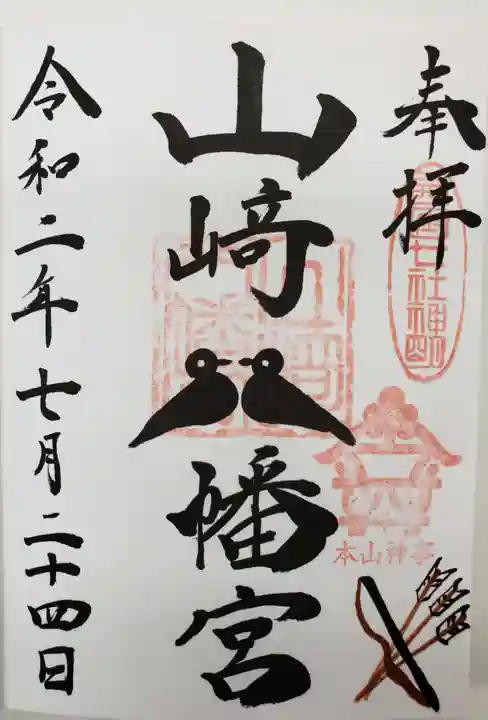 奉拝
山﨑八幡宮
令和二年七月二十四日
本山神事